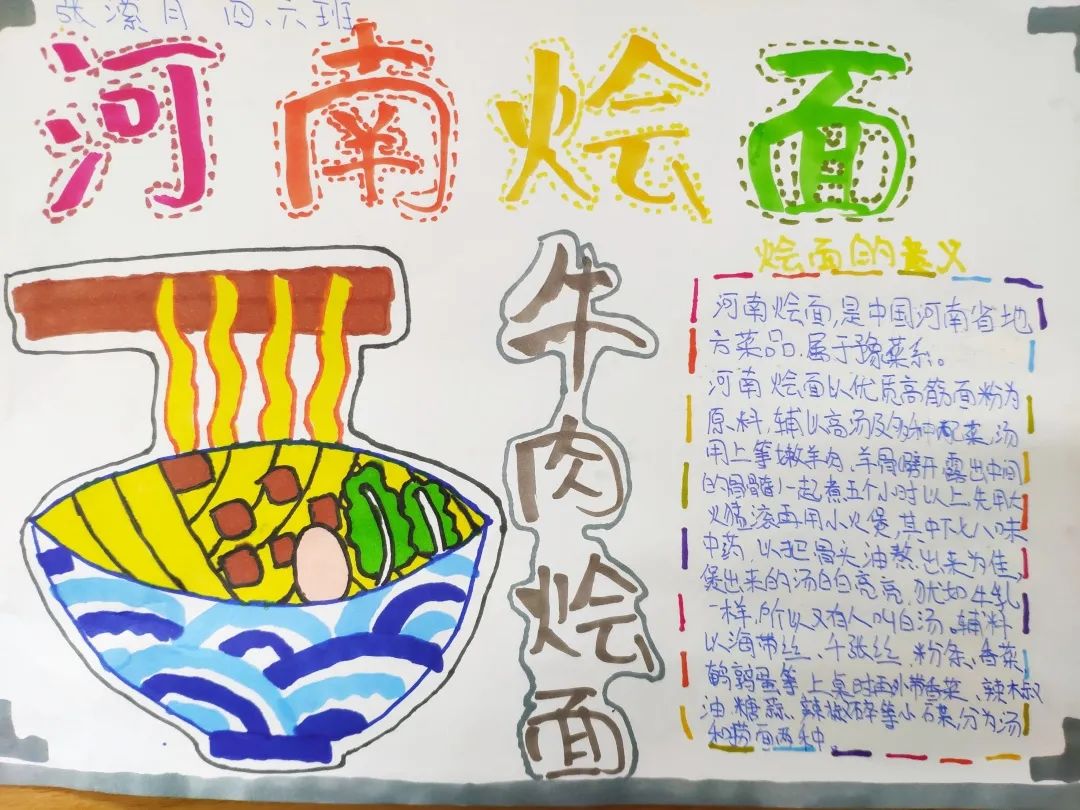 张潆月 四、六班
河南烩面
牛肉烩面
烩面的意义
河南烩面,是中国河南省地
方菜品,属于豫菜系。
河南烩面以优质高筋面粉为
原料,辅以高汤及多种配菜,汤
用上等嫩羊肉、羊骨劈开露出中间
的骨髓一起煮五个小时以上,先用大
火烧滚再用小火煲,其中下七八味
中药,以把骨头油熬出来为佳,
煲出来的汤白白亮亮,犹如牛乳
一样,所以又有人叫白汤。辅料
以海带丝、千张丝、粉条、香菜、
鹌鹑蛋等,上桌时再外带香菜、辣椒
油、糖蒜、辣椒碎等小菜,分为汤
和捞面两种。